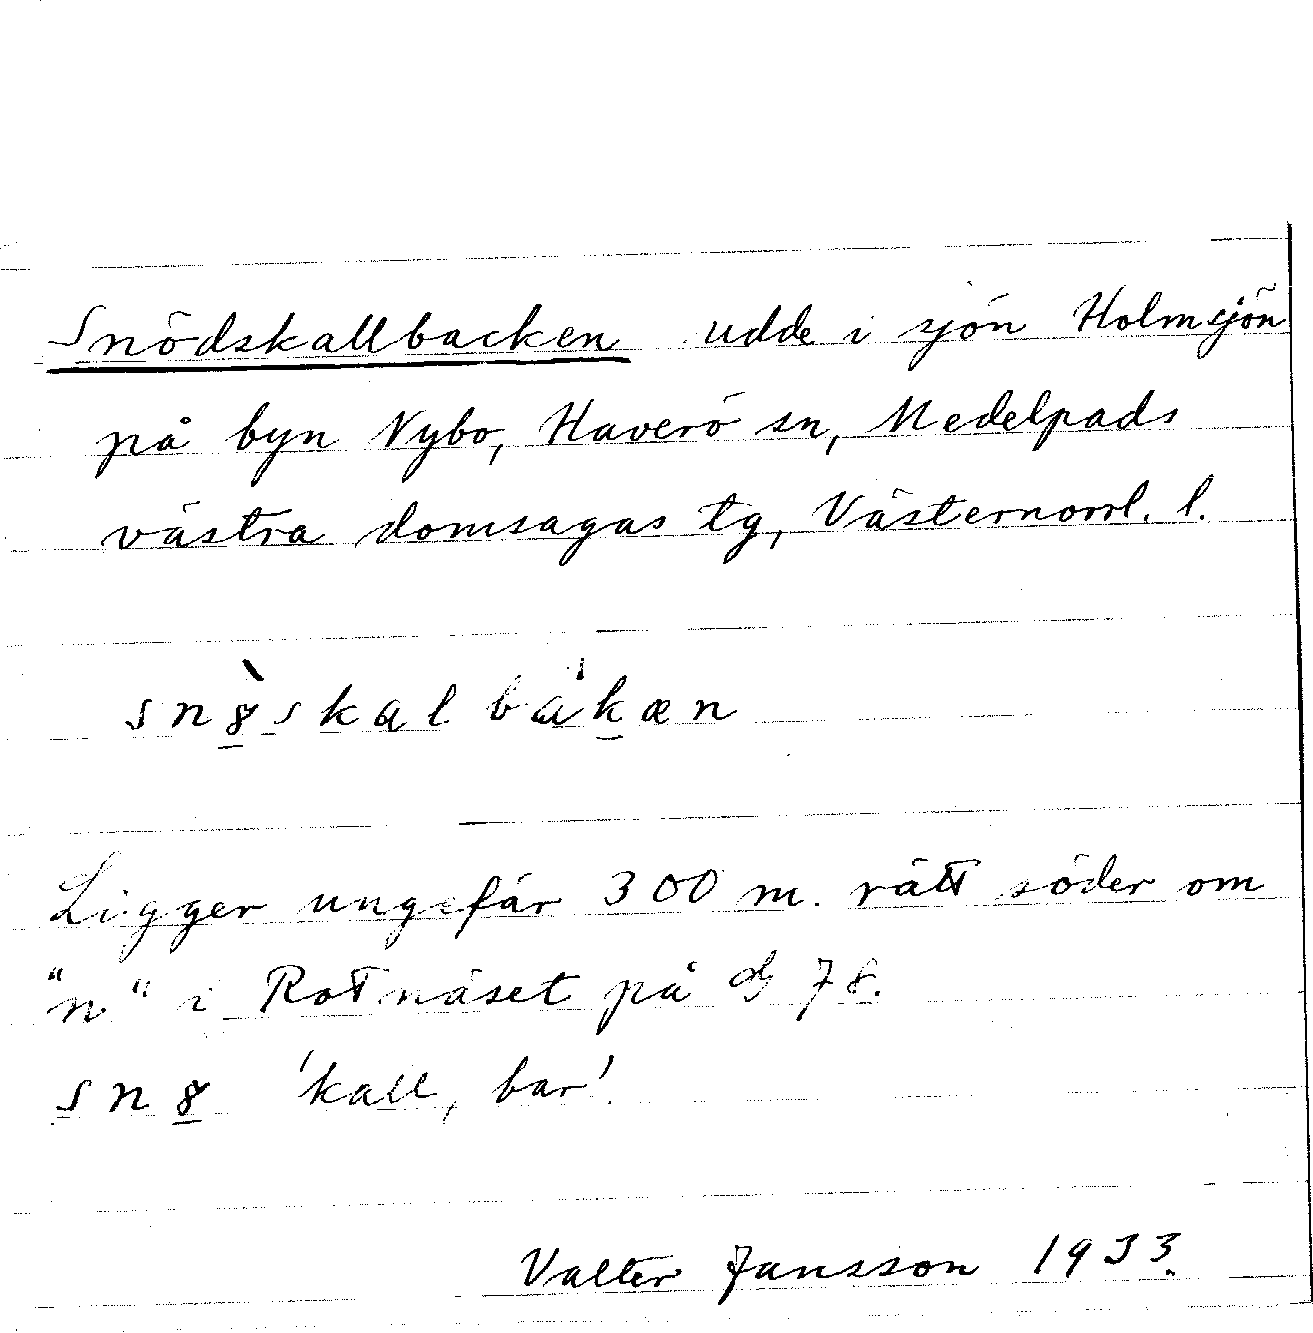 Snödskallbacken udde i sjön Holmsjön
på byn Nybo, Haverö sn, Medelpads
västra domsagas tg, Västernorrl. l.
snȣ̀skalbàkæn
Ligger ungefär 300 m. rätt söder om
"n" i Rotnäset på 78.
snȣ 'kall, bar'.
Valter Jansson 1933.